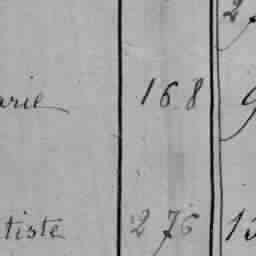 arie 168 9
tiste 276 13